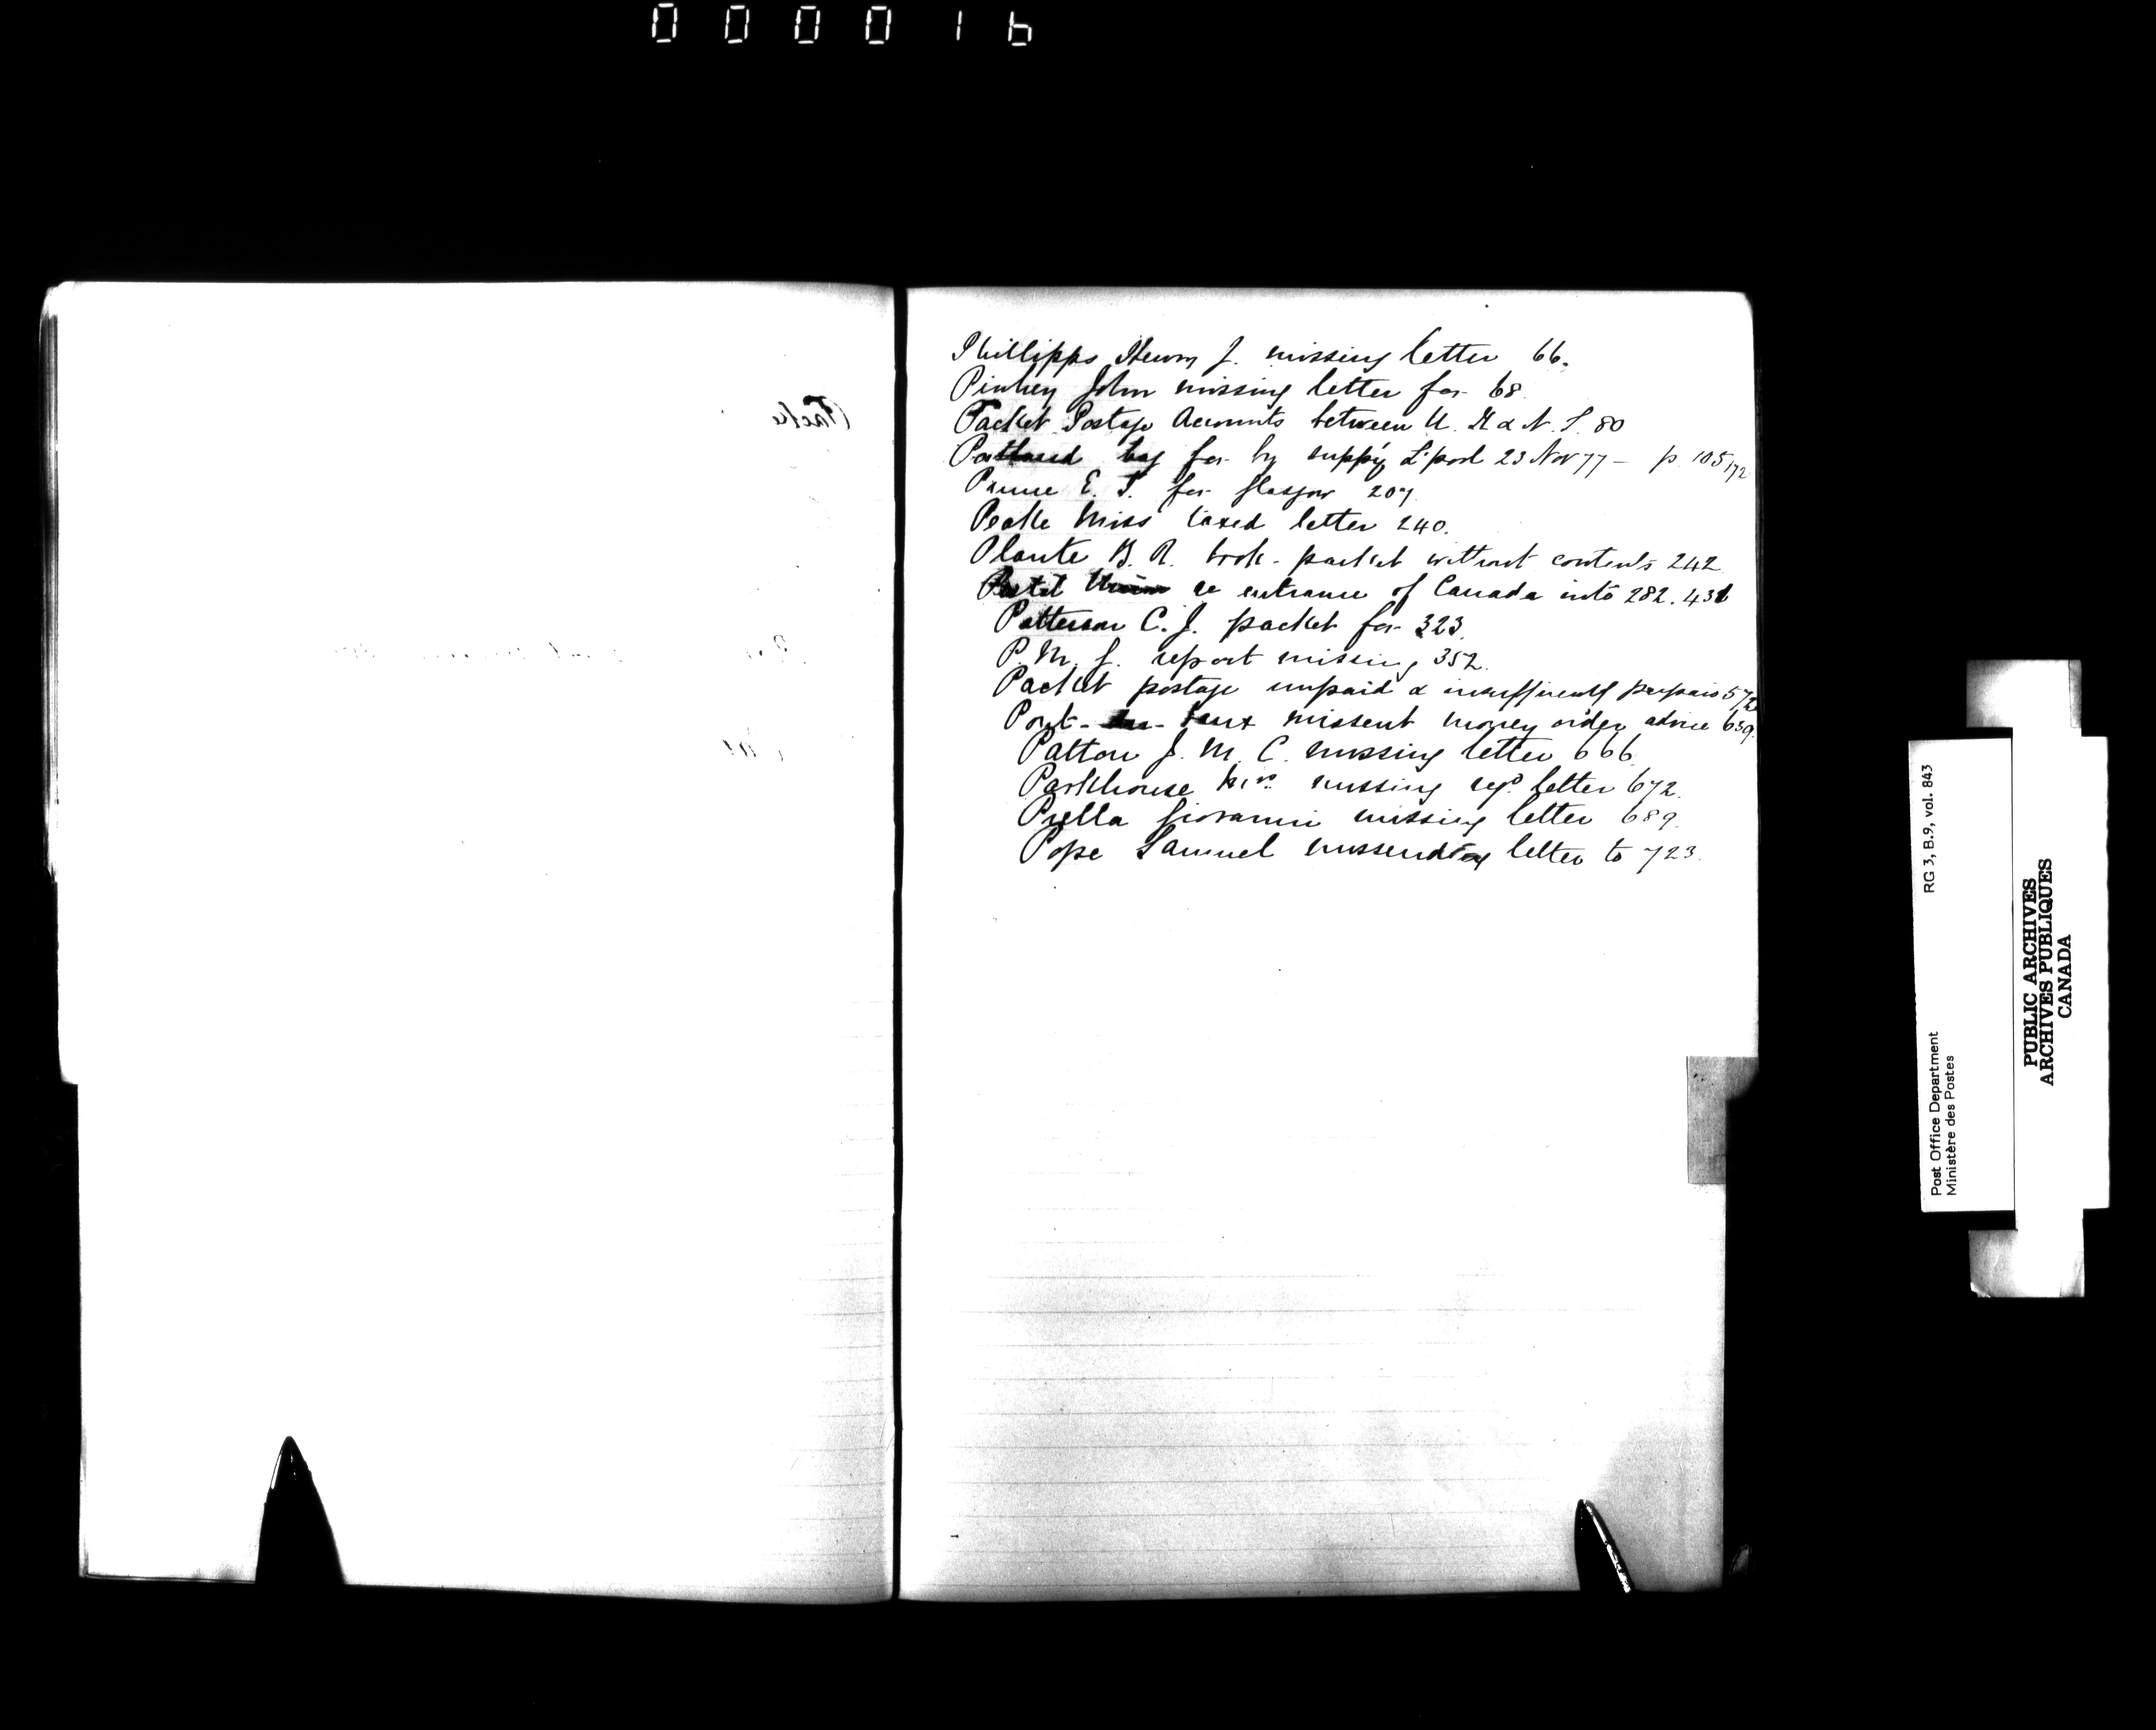 000016
Phillipps Henry J. missing letter 66.
Pinhey John missing letter for 68
Packet Postage Accounts between U. K & N. S. 80
Portland bag for by supp'y L'pool 23 Nov 77 — p. 105, 172
E. T. for Glasgow 207.
Peake Miss taxed letter 240.
Plante B. R. book-packet without contents 242
Postal Union re entrance of Canada into 282. 436
Patterson C. J. packet for 323.
P. M. G. report missing 352.
Packet postage unpaid & insufficiently prepaid 572
Pont- missent money order advice 659.
Patton J. M. C. missing letter 666.
Parkhouse Mrs. missing regd letter 672.
Prella Giovanni missing letter 689.
Pope Samuel missending letter to 723.
RG 3, B.9, vol. 843
Post Office Department
Ministère des Postes
PUBLIC ARCHIVES
ARCHIVES PUBLIQUES
CANADA